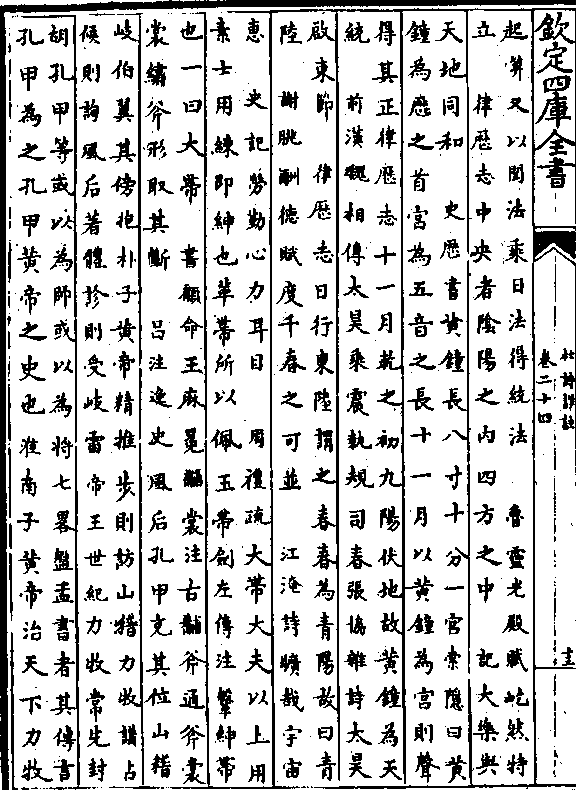 欽定四庫全書
杜詩詳註
卷二十四
十三
起算又以閏法乘日法得統法　魯靈光殿賦屹然特
立　律歷志中央者陰陽之内四方之中　記大樂與
天地同和　史歷書黄鐘長八寸十分一宫索隱曰黄
鐘為歷之首宫為五音之長十一月以黄鐘為宫則聲
得其正律歷志十一月乾之初九陽伏地故黄鐘為天
統　前漢魏相傳太昊乘震執規司春張協雜詩太昊
啟東節　律歷志日行東陸謂之春春為青陽故曰青
陸　謝朓酬德賦度千春之可並　江淹詩曠哉宇宙
惠　史記勞勤心力耳目　周禮疏大帶大夫以上用
素士用練即紳也革帶所以佩玉帶劍左傳注鞶紳帶
也一曰大帶　書顧命王麻冕黼裳注古黼斧通斧裳
裳繡斧形取其斷　呂注逸史風后孔甲充其位山稽
岐伯翼其傍抱朴子黄帝精推步則訪山稽力牧講占
候則詢風后著體診則受岐雷帝王世紀力牧常先封
胡孔甲等或以為師或以為將七畧盤盂書者其傳書
孔甲為之孔甲黄帝之史也淮南子黄帝治天下力牧